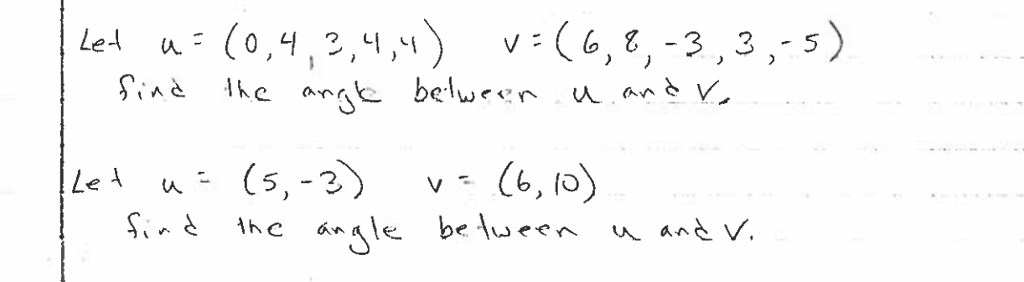 Let u = (0,4,3,4,4) v = (6,8,-3,3,-5)
find the angle between u and v.
Let u = (5,-3) v = (6,10)
find the angle between u and v.